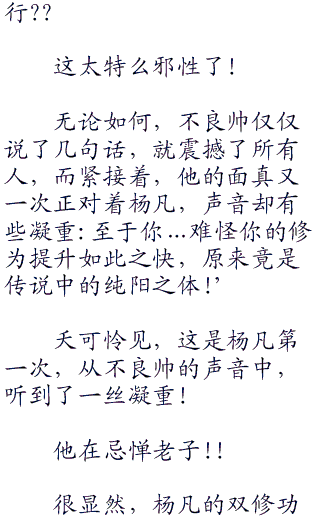 行??
这太特么邪性了!
无论如何，不良帅仅仅
说了几句话，就震撼了所有
人，而紧接着，他的面真又
一次正对着杨凡，声音却有
些凝重:至于你…难怪你的修
为提升如此之快，原来竟是
传说中的纯阳之体!’
天可怜见，这是杨凡第
一次，从不良帅的声音中，
听到了一丝凝重!
他在忌惮老子!!
很显然，杨凡的双修功